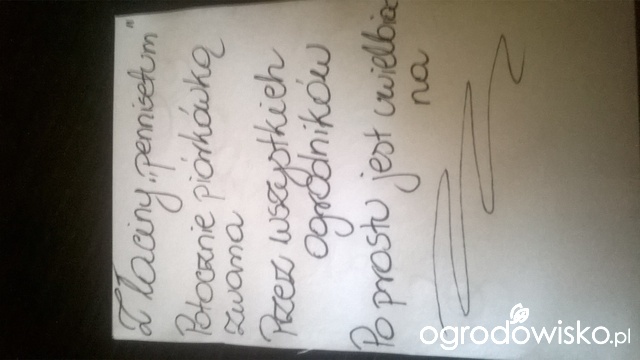 Z łaciny „pennisetum"
Potocznie piórkówką
zwana
Przez wszystkich
ogrodników
Po prostu jest uwielbia
na
ogrodowisko.pl